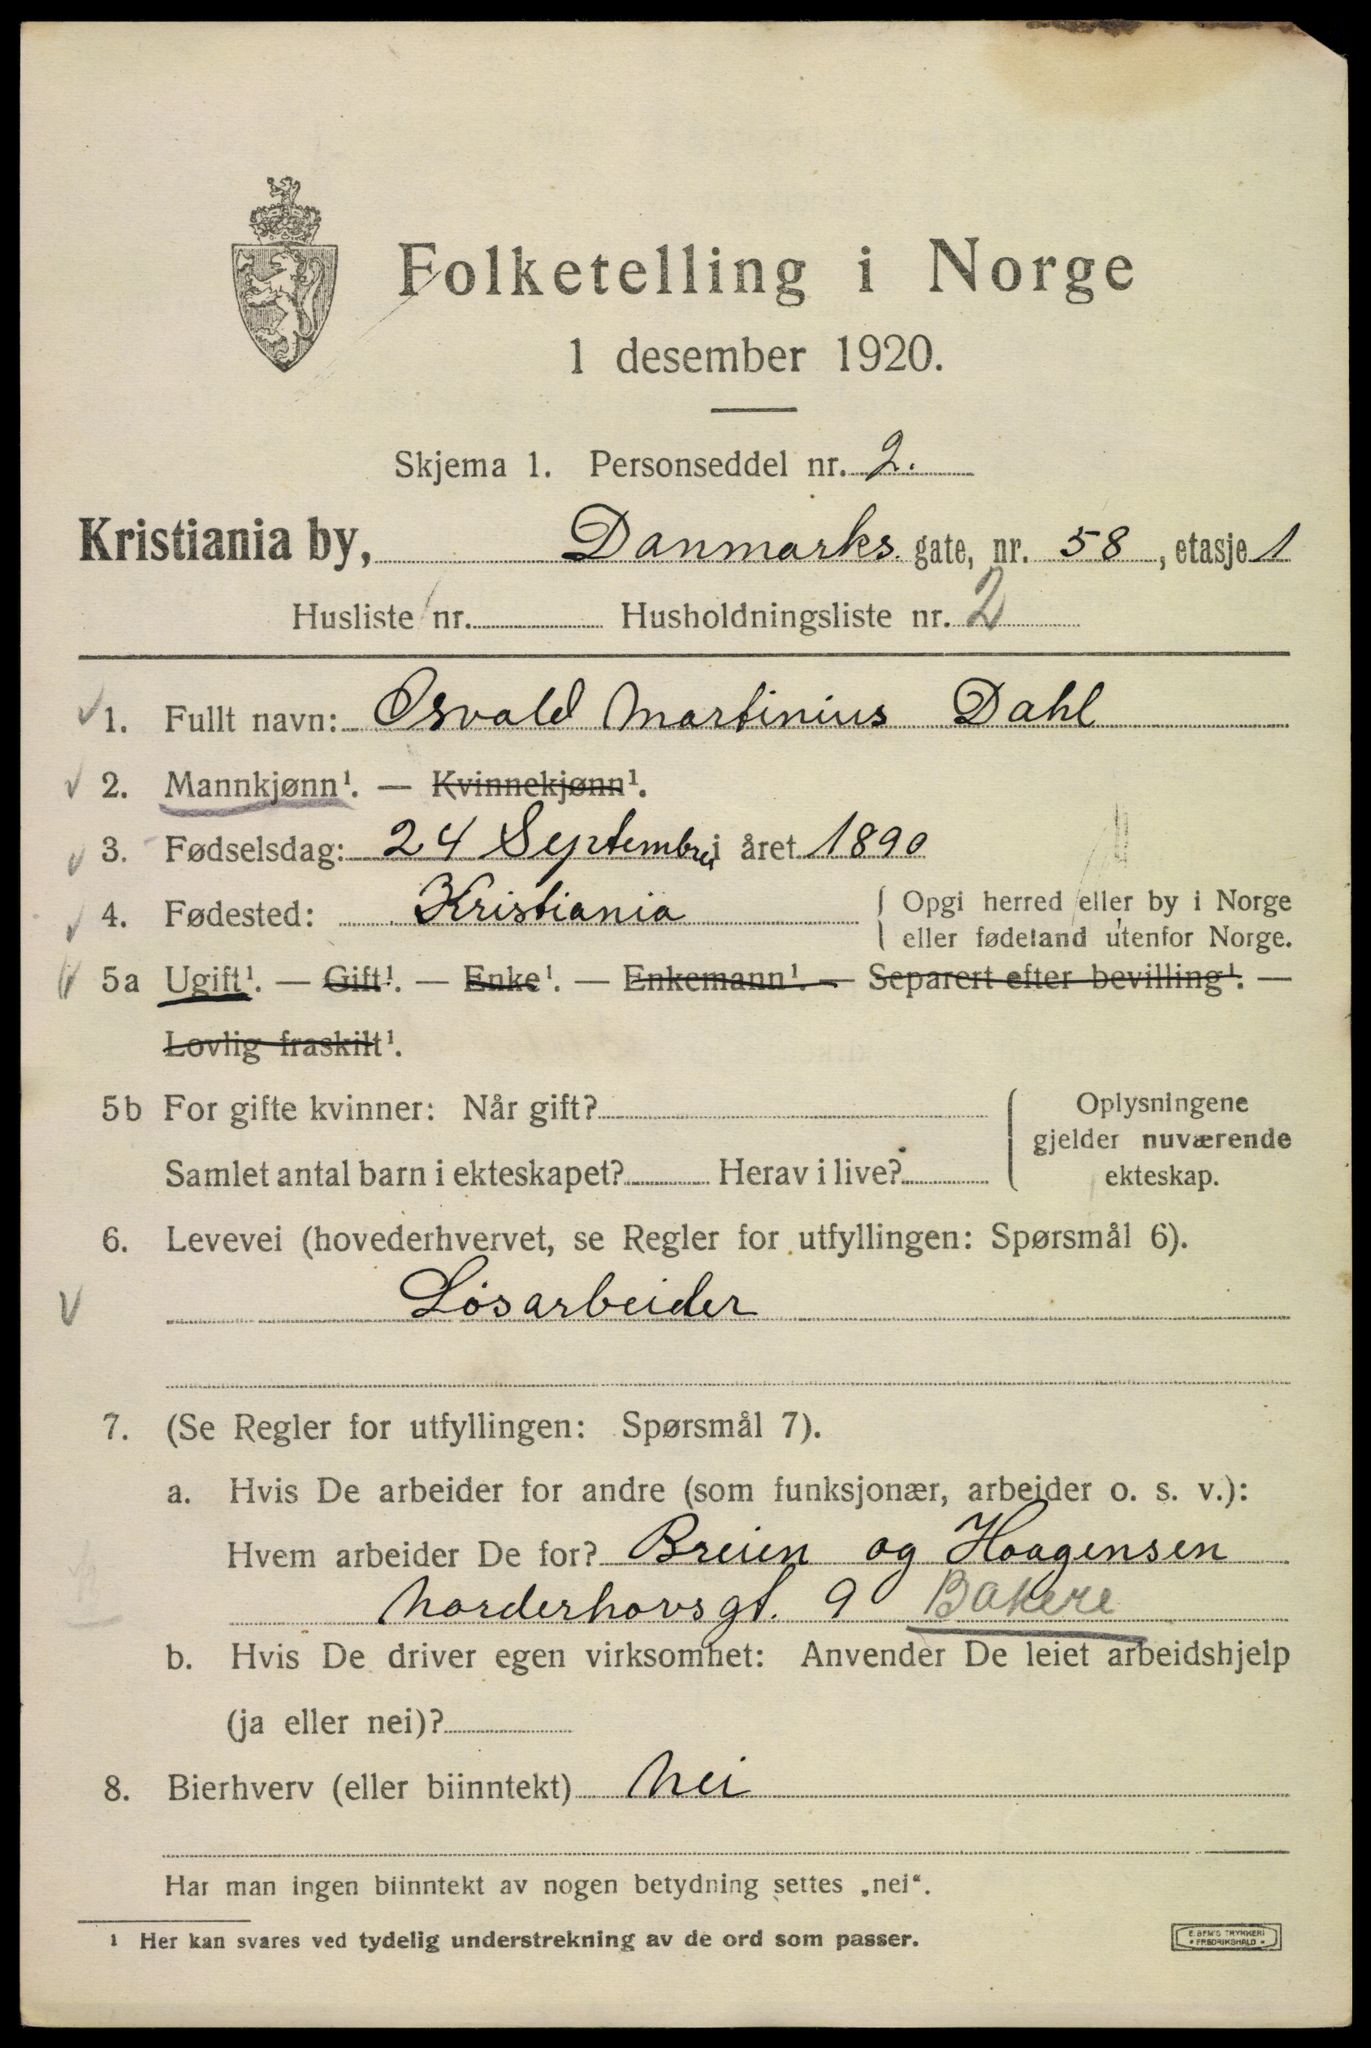 Folketelling i Norge
1 desember 1920.
Skjema 1. Personseddel nr. 2.
Kristiania by, Danmarks gate, nr. 58, etasje 1
Husliste nr. Husholdningsliste nr. 2
1. Fullt navn: Osvald Martinius Dahl
2. Mannkjønn¹. — Kvinnekjønn¹.
3. Fødselsdag: 24 Septembr i året 1890
4. Fødested: Kristiania { Opgi herred eller by i Norge
eller fødeland utenfor Norge.
5a Ugift¹. — Gift¹. — Enke¹. — Enkemann¹. — Separert efter bevilling¹. —
Lovlig fraskilt¹.
5b For gifte kvinner: Når gift? { Oplysningene
gjelder nuværende
Samlet antal barn i ekteskapet? Herav i live? ekteskap.
6. Levevei (hovederhvervet, se Regler for utfyllingen: Spørsmål 6).
Løsarbeider
7. (Se Regler for utfyllingen: Spørsmål 7).
a. Hvis De arbeider for andre (som funksjonær, arbeider o. s. v.):
Hvem arbeider De for? Breien og Haagensen
Norderhovsgt. 9 Bakere
b. Hvis De driver egen virksomhet: Anvender De leiet arbeidshjelp
(ja eller nei)?
8. Bierhverv (eller biinntekt) Nei
Har man ingen biinntekt av nogen betydning settes „nei“.
¹ Her kan svares ved tydelig understrekning av de ord som passer.
E. SEM'S TRYKKERI
• FREDRIKSHALD •